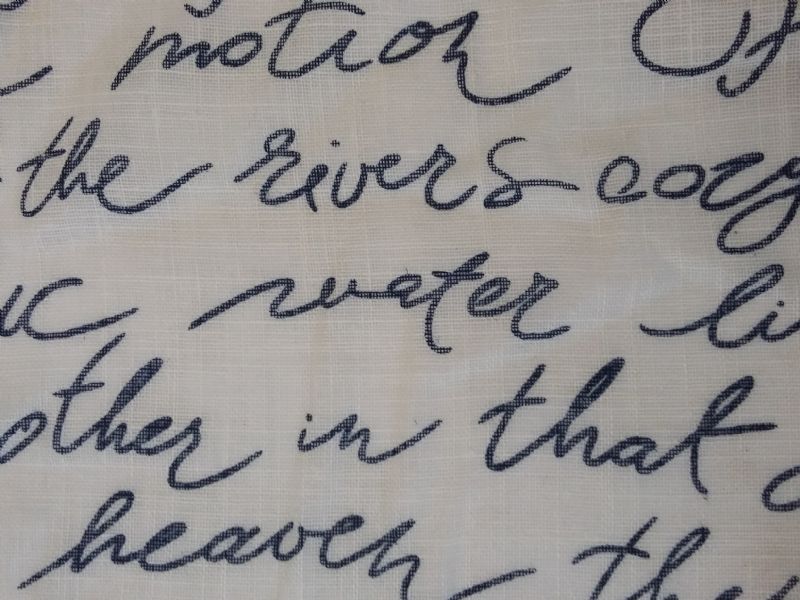 motion Of
the rivers cozy
water li
other in that
heaven the